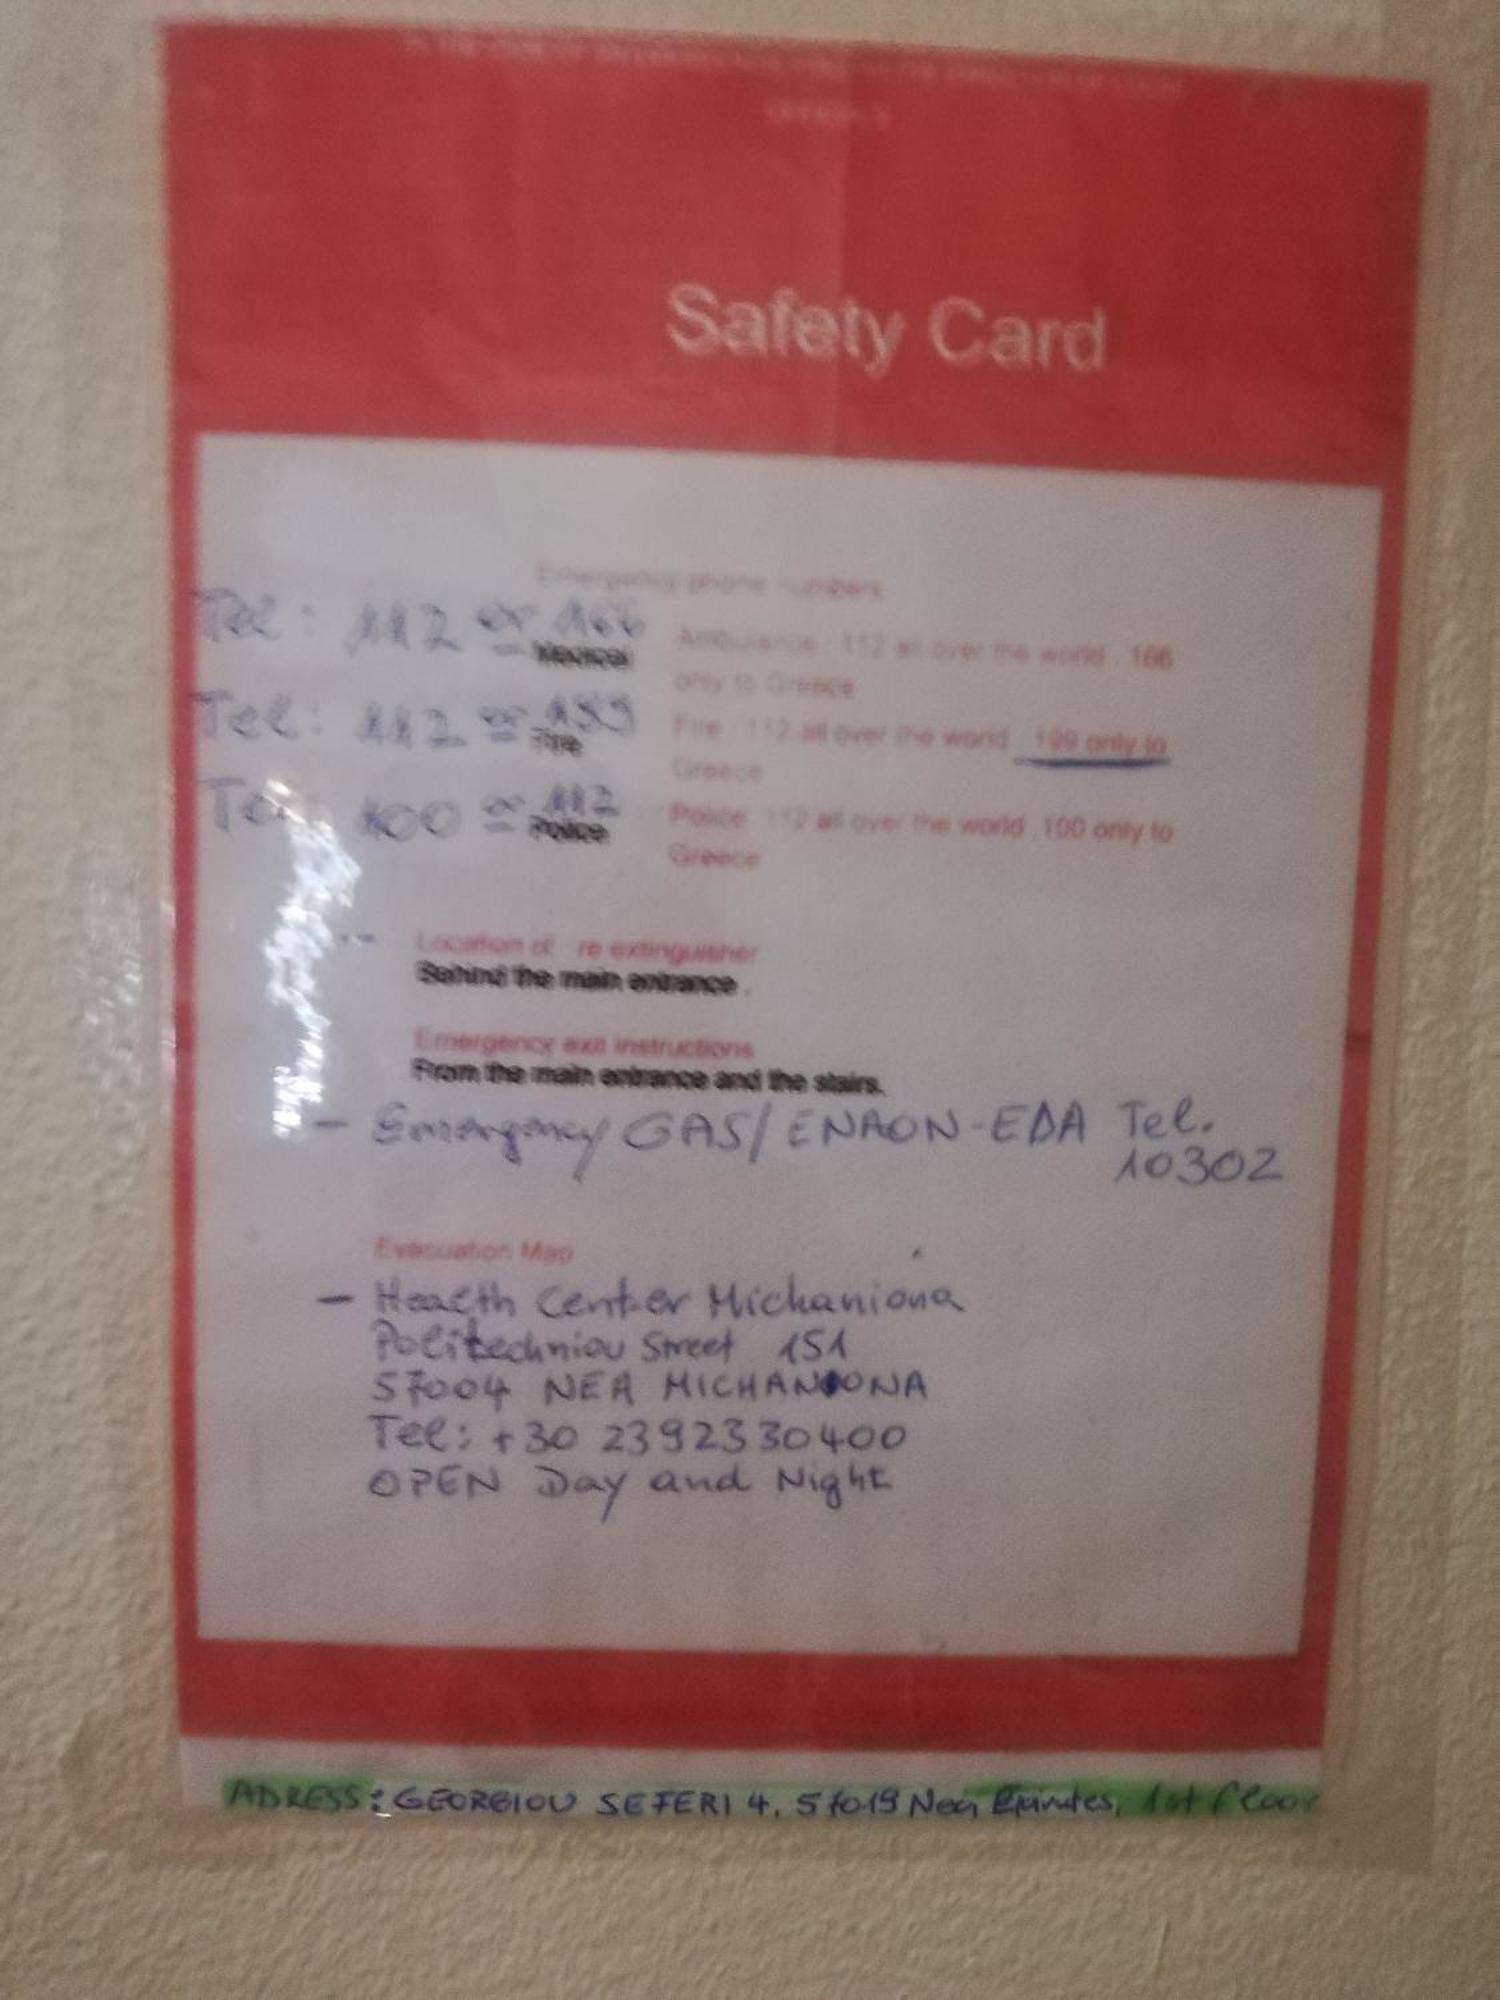 Safety Card
Emergency phone numbers
Tel: 112 or 166
Medical
Ambulance : 112 all over the world . 166
only to Greece
Tel: 112 or 199
Fire
Fire : 112 all over the world 199 only to
Greece
100 or 112
Police
Police 112 all over the world .100 only to
Greece
Location of re extinguisher
Behind the main entrance .
Emergency exit instructions
From the main entrance and the stairs.
- Emergency GAS/ ENAON-EDA Tel.
10302
Evacuation Map
- Health Center Michaniona
Politechniou Street 151
57004 NEA MICHANIONA
Tel: +30 2392330400
OPEN Day and Night
ADRESS: GEORGIOU SEFERI 4, 57019 Nea Epivates, 1st floor